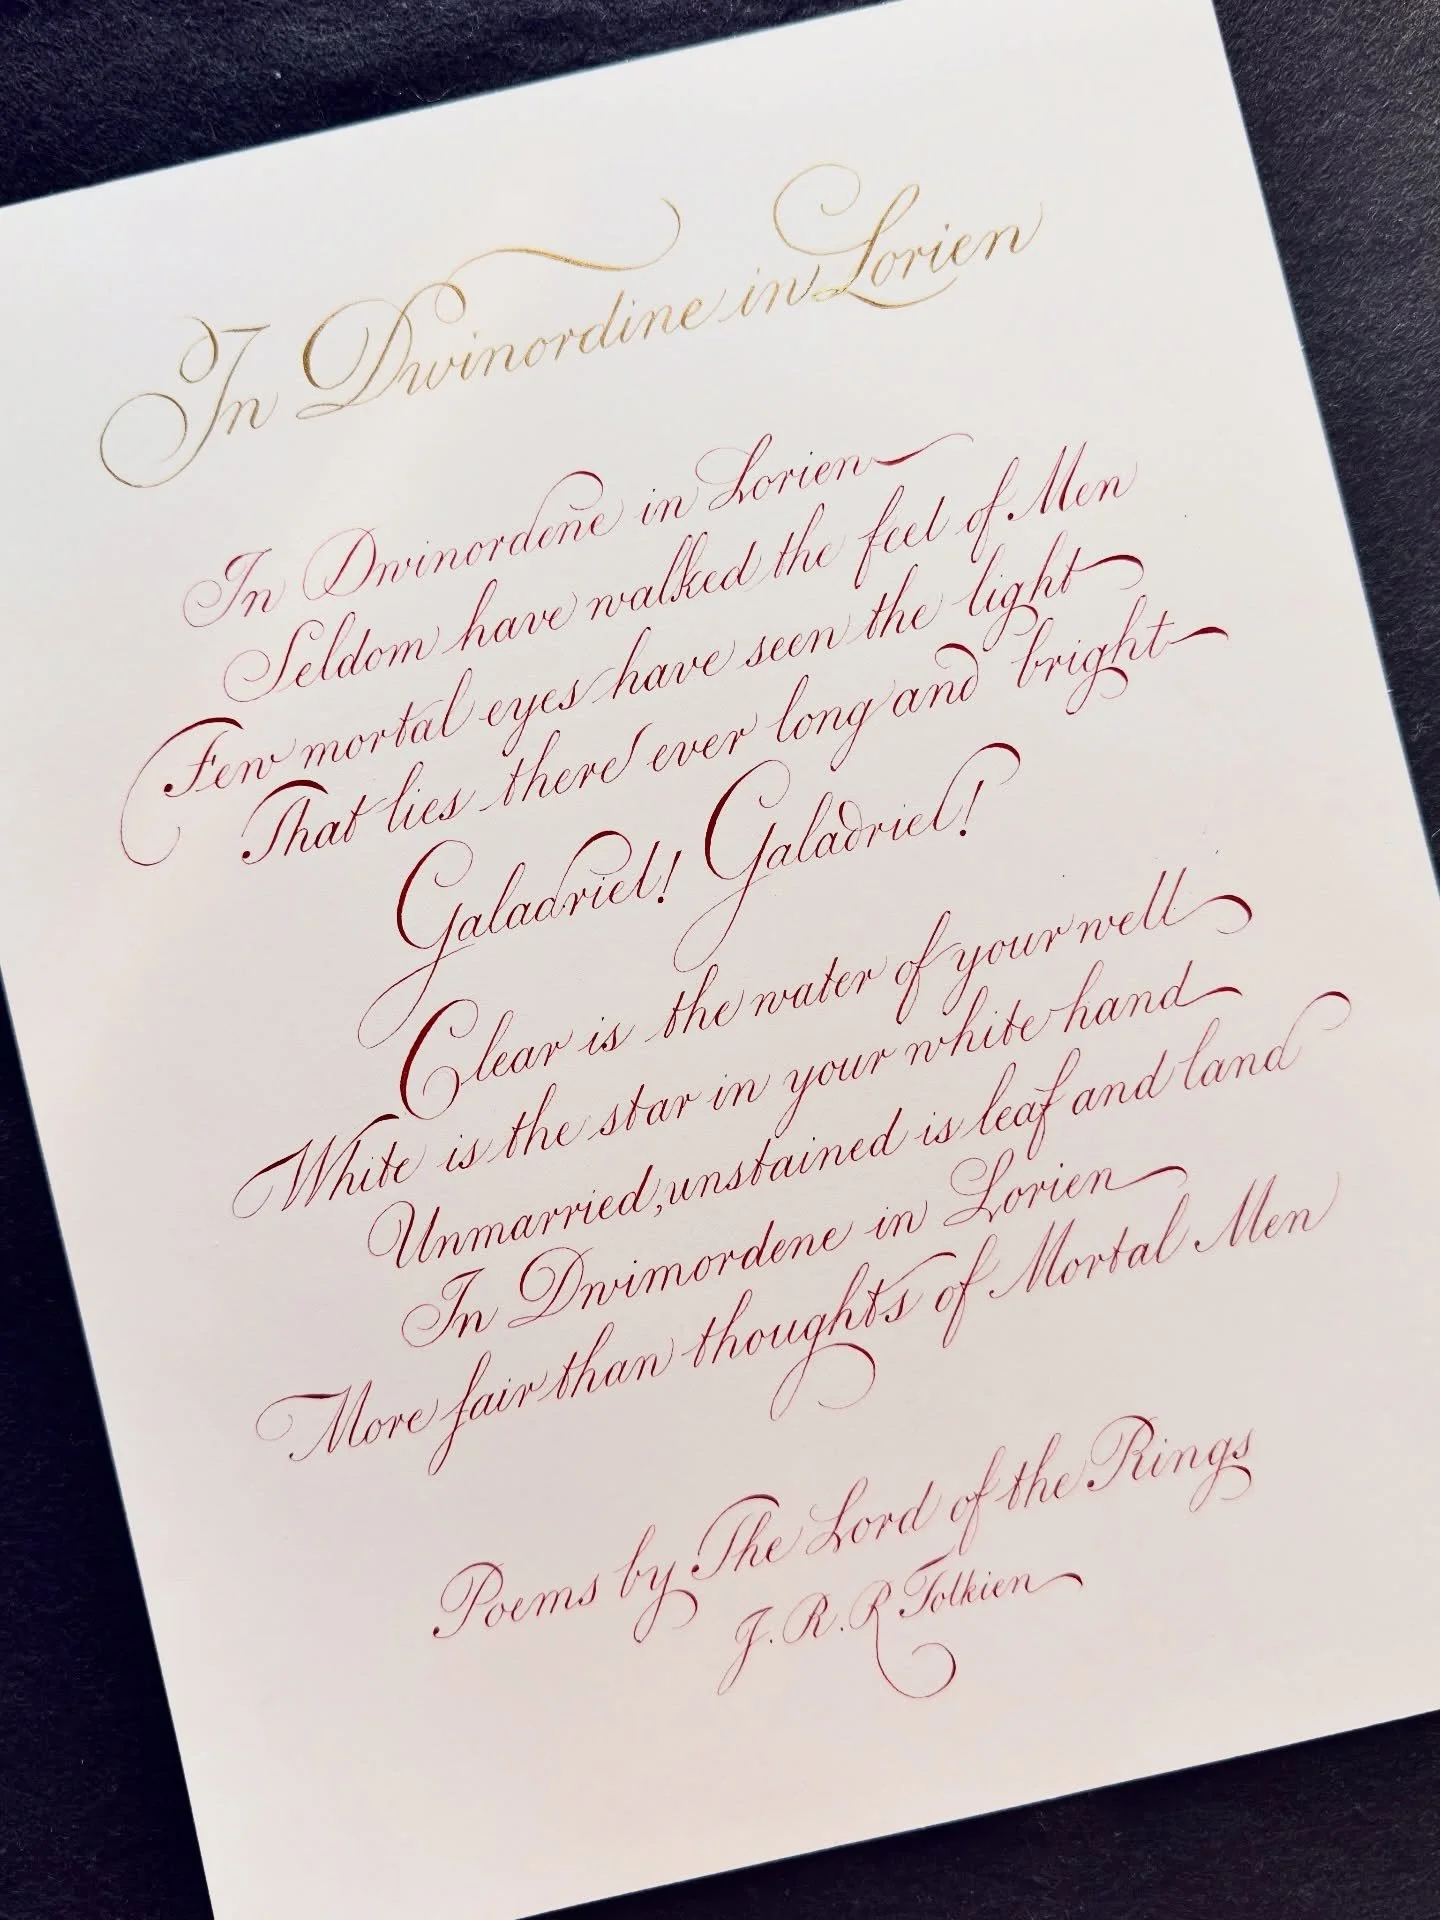 In Dwinordine in Lorien
In Dwinordene in Lorien
Seldom have walked the feet of Men
Few mortal eyes have seen the light
That lies there ever long and bright
Galadriel! Galadriel!
Clear is the water of your well
White is the star in your white hand
Unmarried, unstained is leaf and land
In Dwimordene in Lorien
More fair than thoughts of Mortal Men
Poems by The Lord of the Rings
J. R. R Tolkien